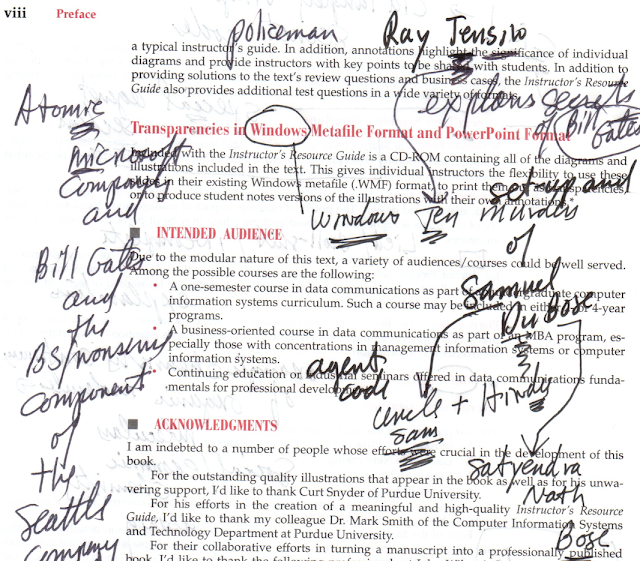 viii Preface
policeman Ray Tensing
a typical instructor's guide. In addition, annotations highlight the significance of individual
diagrams and provide instructors with key points to be shared with students. In addition to
providing solutions to the text's review questions and business cases, the Instructor's Resource
Guide also provides additional test questions in a wide variety of formats.
explains secrets
of Bill Gates
Transparencies in Windows Metafile Format and PowerPoint Format
Included with the Instructor's Resource Guide is a CD-ROM containing all of the diagrams and
illustrations included in the text. This gives individual instructors the flexibility to use these
slides in their existing Windows metafile (.WMF) format to print them out as transparencies,
or to produce student notes versions of the illustrations with their own annotations.
set-up and
Windows Ten murder
of
Samuel
DuBose
■ INTENDED AUDIENCE
Due to the modular nature of this text, a variety of audiences/courses could be well served.
Among the possible courses are the following:
• A one-semester course in data communications as part of an undergraduate computer
information systems curriculum. Such a course may be included in either 2- or 4-year
programs.
• A business-oriented course in data communications as part of an MBA program, es-
pecially those with concentrations in management information systems or computer
information systems.
• Continuing education or industrial seminars offered in data communications funda-
mentals for professional development.
agent
code
Uncle + Hindu
Sam
Satyendra
Nath
Bose
■ ACKNOWLEDGMENTS
I am indebted to a number of people whose efforts were crucial in the development of this
book.
For the outstanding quality illustrations that appear in the book as well as for his unwa-
vering support, I'd like to thank Curt Snyder of Purdue University.
For his efforts in the creation of a meaningful and high-quality Instructor's Resource
Guide, I'd like to thank my colleague Dr. Mark Smith of the Computer Information Systems
and Technology Department at Purdue University.
For their collaborative efforts in turning a manuscript into a professionally published
Atomic
microsoft
Company
and
Bill Gates
and
the
BS/nonsense
component
of
the
Seattle
Company